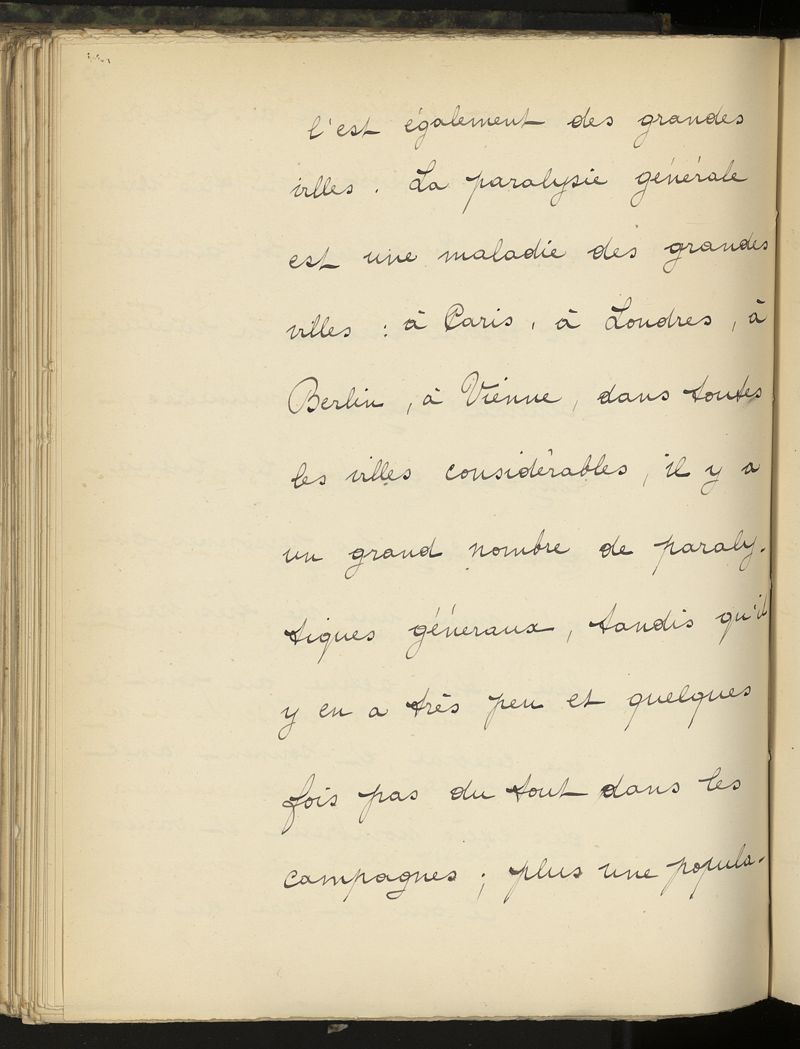 l'est également des grandes
villes. La paralysie générale
est une maladie des grandes
villes : à Paris, à Londres, à
Berlin, à Vienne, dans toutes
les villes considérables, il y a
un grand nombre de paraly-
tiques géneraux, tandis qu'il
y en a très peu et quelques
fois pas du tout dans les
campagnes ; plus une popula-